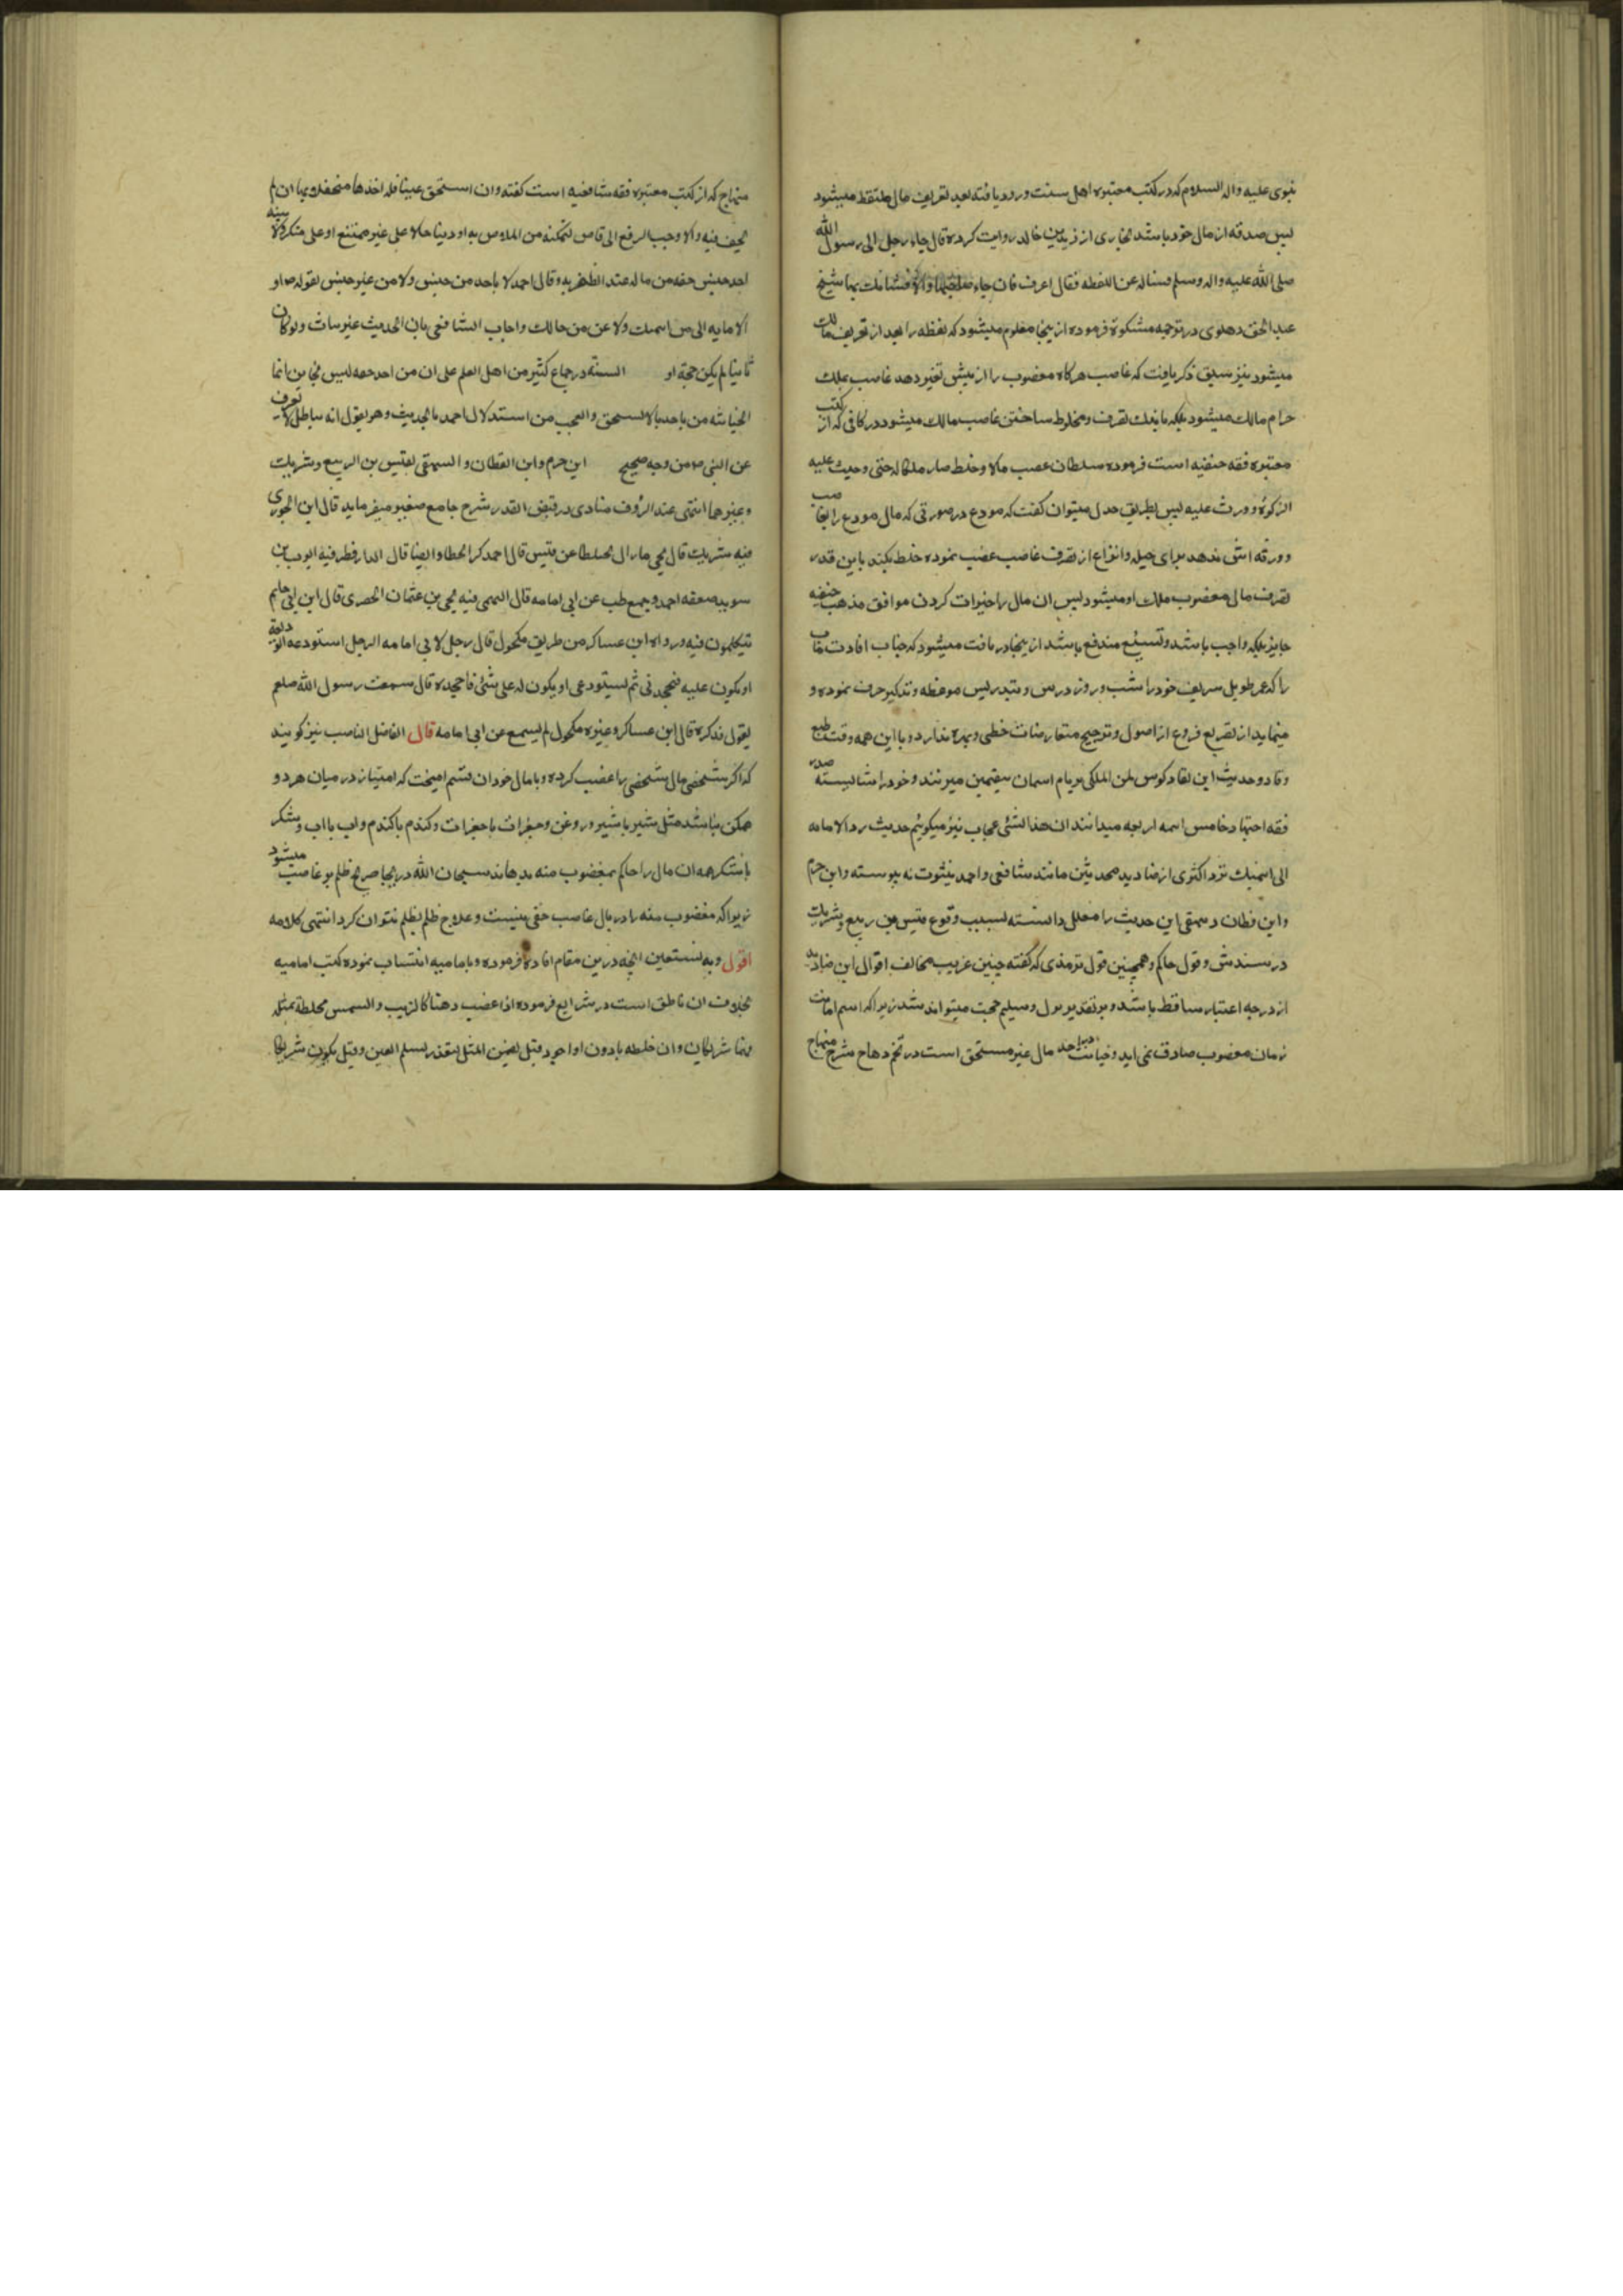 نبوی علیه واله السلام که در کتب معتبره اهل سنت ورود یافته بعد تعریف مال ملتقط میشود
لیس صدقه از مال خود باشد بخاری از زید بن خالد روایت کرده قال جاء رجل الی رسول الله
صلی الله علیه واله وسلم فساله عن اللقطه فقال اعرف فان جاء صاحبها والا فشانک بها شیخ
عبد الحق دهلوی در ترجمه مشکوة فرموده از ینجا معلوم میشود که لقطه را بعد از تعریف مالک
میشود نیز سبق ذکر یافت که غاصب هرکاه مغضوب را از پیش تغیر دهد غاصب بملک
حرام مالک میشود بلکه باندک تصرف و مخلوط ساختن غاصب مالک میشود در کافی که از کتب
معتبره فقه حنفیه است فرموده سلطان غصب مالا وخلط صار ملکا له حتی وجبت علیه
الزکوة و ورث علیه لیس بطریق جدل میتوان کفت که مودع در صورتی که مال مودع را بجا
و ورقه انثی ندهد برای حیله وانزاع از تصرف غاصب غضب نموده خلط بکند باین قدر
تصرف مالی مغضوب ملک او میشود لیس ان مال را خیرات کردن موافق مذهب حنفیه
جایز بلکه واجب باشد و تشنیع مندفع باشد از ینجا دریافت میشود که جناب افادت ماب
را که عمر طویل شریف خود را شب و روز درس و تدریس موعظه و تذکیر صرف نموده و
مینماید از تفریع فروع از اصول و ترجیح متعارضات خطی و بهره ندارد و با این همه وقت طبع
وقاد وحدیث این نقاد کوس لمن الملکی بر بام اسمان میزنند و خود را شایسته صدر
فقه اجتهاد خامس ایمه اربعه میدانند ان هذا لشئ عجاب نیز میکوئیم حدیث رد الامانه
الی ائتمنک نزد اکثری از صنادید محدثین مانند شافعی و احمد بثبوت نه پیوسته وابن حزم
وابن قطان و بیهقی این حدیث را معلل دانسته بسبب وقوع قیس بن ربیع و شریک
در سندش و قول حاکم و همچنین قول ترمذی که کفته حسن غریب مخالف اقوال این صنادید
از درجه اعتبار ساقط باشد و بر تقدیر نزول و تسلیم حجت میتواند شد زیرا که اسم امانت
زمان مغضوب صادق نمی اید و خیانت مال غیر مستحق است در تحفه شرح منهاج
منهاج که از کتب معتبره فقه شافعیه است کفته وان استحق عینا فله اخذها ان لم
یخف فتنه والا وجب الرفع الی قاض او دینا حالا علی غیر ممتنع او علی منکر ولا بینه
اخذ جنس حقه من ماله عند الظفر به وقال احمد لا یاخذ من جنس ولا من غیر جنس لقوله ص اد
الامانه الی من ائتمنک ولا تخن من خانک واجاب الشافعی بان الحدیث غیر ثابت ولو کان
ثابتا لم یکن حجة او السنة واجماع کثیر من اهل العلم علی ان من اخذ حقه لیس بخاین انما
الخیانة من یاخذ ما لا یستحق والعجب من استدلال احمد بالحدیث وهو یقول انه باطل لا تعرف
عن النبی ص من وجه صحیح ابن حزم وابن القطان و البیهقی بقیس بن الربیع و شریک
وغیرهما انتهی عبد الرؤف مناوی در فیض القدیر شرح جامع صغیر میفرماید قال ابن الجوزی
فیه شریک قال یحیی ما زال مختلطا عن قیس قال احمد کثیر الخطا وایضا قال الدار قطنی فیه ایوب بن
سوید ضعفه احمد و جمع طب عن ابی امامه قال الهیثمی فیه یحیی بن عثمان المصری قال ابن ابی حاتم
یتکلمون فیه ورواه ابن عساکر من طریق مکحول قال رجل لابی امامه الرجل استودعه الودیعة
او یکون علیه فیجحدنی ثم یستودعی او یکون له علی شئ فاجحده قال سمعت رسول الله صلعم
یقول فذکره قال ابن عساکر وغیره مکحول لم یسمع عن ابی امامه قال الفاضل الناصب نیز کویند
که اکر شخصی مال شخصی را غضب کرده و با مال خود ان قسم امیخت که امتیاز در میان هر دو
ممکن نباشد مثل شیر با شیر و روغن و جغرات با جغرات و کندم با کندم واب با اب و شکر
با شکر همه ان مال را حاکم بمغضوب منه بدهاند سبحان الله در ینجا صرح ظلم بر غاصب میشود
زیرا که مغضوب منه را در مال غاصب حقی نیست و علاج ظلم بظلم نتوان کرد انتهی کلامه
اقول وبه نستعین انچه درین مقام افاده فرموده و بامامیه انتساب نموده کتب امامیه
بخلاف ان ناطق است در شرایع فرموده اذا غضب دهنا کالزیت والسمن مخلطه بمثله
فهما شریکان وان خلطه بادون او اجود قیل یضمن المثل لتعذر تسلیم العین وقیل یکون شریکا